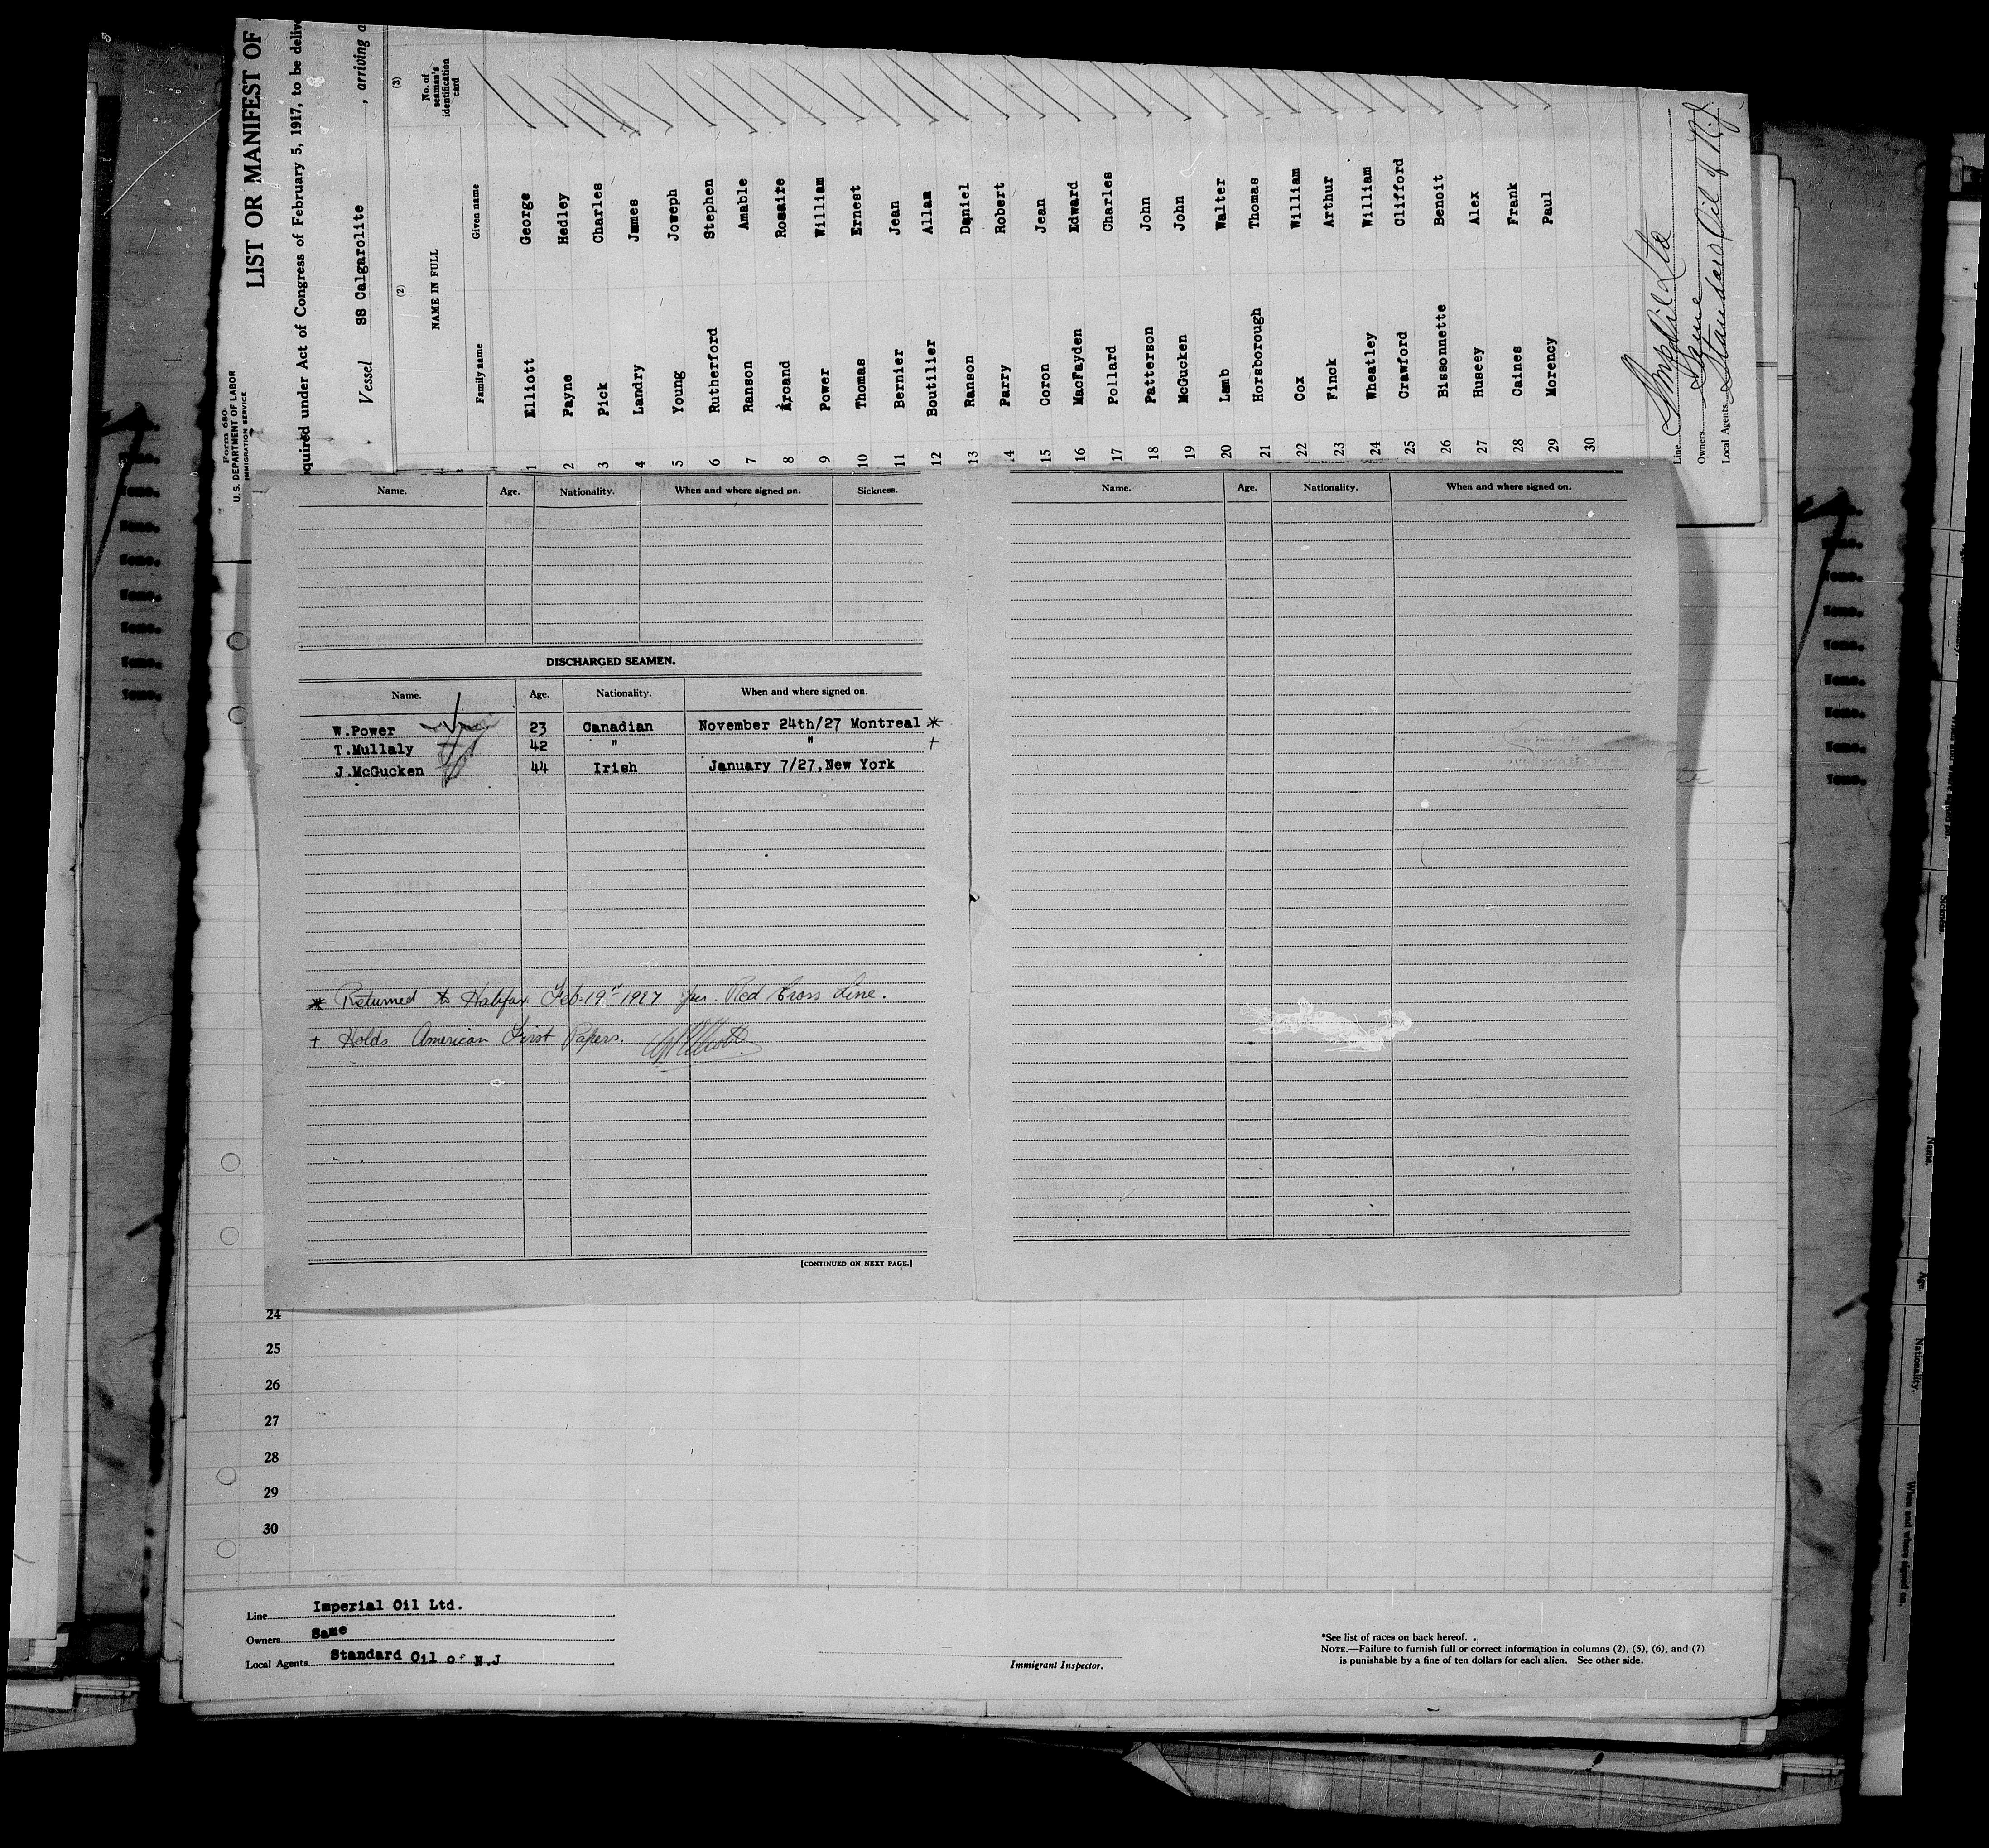 Form 680
U.S. DEPARTMENT OF LABOR
IMMIGRATION SERVICE
LIST OR MANIFEST OF
quired under Act of Congress of February 5, 1917, to be deliv
Vessel SS Calgarolite , arriving a
(2) (3)
NAME IN FULL No. of seaman's identification card
Family name Given name
1 Elliott George
2 Payne Hedley
3 Pick Charles
4 Landry James
5 Young Joweph
6 Rutherford Stephen
7 Ranson Amable
8 Arcand Rosaire
9 Power William
10 Thomas Ernest
11 Bernier Jean
12 Boutilier Allan
13 Ranson Daniel
14 Parry Robert
15 Coron Jean
16 MacFayden Edward
17 Pollard Charles
18 Patterson John
19 McGucken John
20 Lamb Walter
21 Horsborough Thomas
22 Cox William
23 Finck Arthur
24 Wheatley William
25 Crawford Clifford
26 Bissonnette Benoit
27 Husey Alex
28 Caines Frank
29 Morency Paul
30
Line Imp Oil Ltd
Owners Same
Local Agents Standard Oil of N.J.
Name. Age. Nationality. When and where signed on. Sickness.
DISCHARGED SEAMEN.
Name. Age. Nationality. When and where signed on.
W.Power 23 Canadian November 24th/27 Montreal *
T.Mullaly 42 " " +
J.McGucken 44 Irish January 7/27,New York
* Returned to Halifax Feb. 19th 1927 per. Red Cross Line.
+ Holds American First Papers.
[CONTINUED ON NEXT PAGE.]
Name. Age. Nationality. When and where signed on.
24
25
26
27
28
29
30
Line Imperial Oil Ltd.
Owners Same
Local Agents Standard Oil of N.J
Immigrant Inspector.
*See list of races on back hereof.
NOTE.—Failure to furnish full or correct information in columns (2), (5), (6), and (7)
is punishable by a fine of ten dollars for each alien. See other side.
Sickness.
Name.
Age.
Nationality.
When and where signed on.